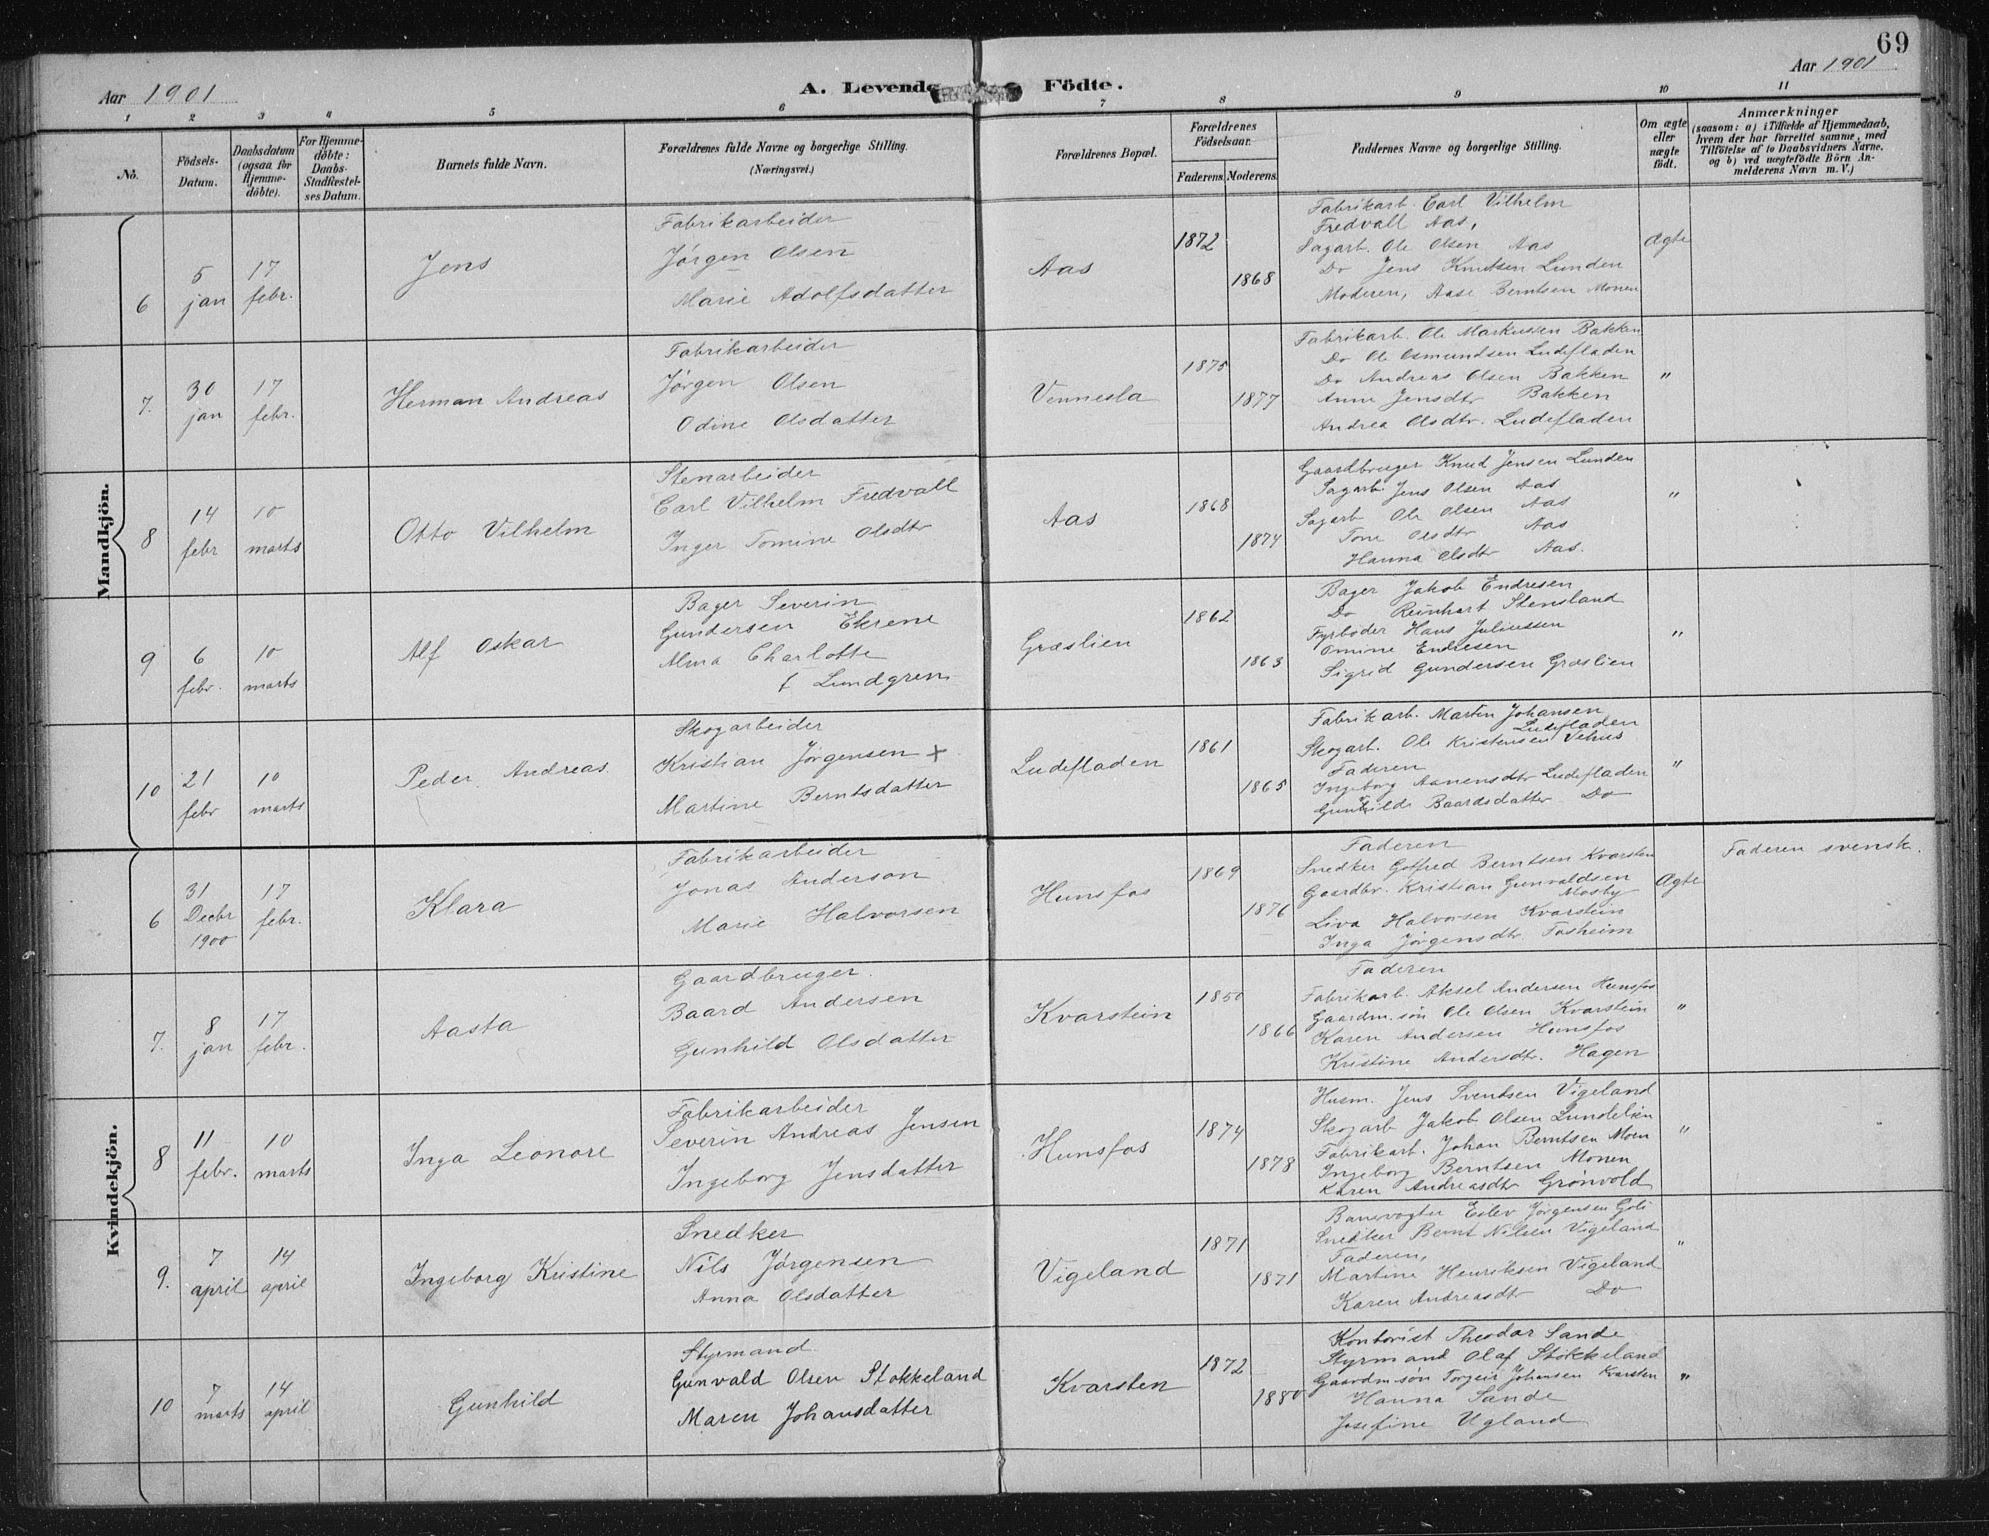 69
Aar 1901
A. Levende Födte.
Aar 1901
1 2 3 4 5 6 7 8 9 10 11
No.
Födsels-
Datum.
Daabsdatum
(ogsaa for
Hjemme-
döbte).
For Hjemme-
döbte:
Daabs-
Stadfæstel-
ses Datum.
Barnets fulde Navn.
Forældrenes fulde Navne og borgerlige Stilling.
(Næringsvei.)
Forældrenes Bopæl.
Forældrenes
Födselsaar.
Faderens. Moderens.
Faddernes Navne og borgerlige Stilling.
Om ægte
eller
uægte
födt.
Anmærkninger
(saasom: a) i Tilfælde af Hjemmedaab,
hvem der har forrettet samme, med
Tilföielse af to Daabsvidners Navne,
og b) ved uægtefödte Börn An-
melderens Navn m. V.)
Mandkjön.
6
5
jan
17
febr.
Jens
Fabrikarbeider
Jørgen Olsen
Marie Adolfsdatter
Aas
1872
1868
Fabrikarb. Carl Vilhelm
Fredvall Aas,
Sagarb. Ole Olsen Aas
Do Jens Knutsen Lunden
Moderen, Aase Berntsen Monen
Ægte
7.
30
jan
17
febr.
Herman Andreas
Fabrikarbeider
Jørgen Olsen
Odine Olsdatter
Vennesla
1875
1877
Fabrikarb. Ole Markussen Bakken
Do Ole Osmundsen Ludefladen
Do Andreas Olsen Bakken
Anne Jensdtr Bakken
Andrea Olsdtr. Ludefladen
"
8
14
febr
10
marts
Otto Vilhelm
Stenarbeider
Carl Vilhelm Fredvall
Inger Tomine Olsdtr
Aas
1868
1874
Gaardbruger Knud Jensen Lunden
Sagarb. Jens Olsen Aas
Sagarb Ole Olsen Aas
Tone Olsdtr Aas
Hanna Olsdtr Aas.
"
9
6
febr.
10
marts
Alf Oskar
Bager Severin
Gundersen Ekrene
Alma Charlotte
f Lundgren
Græslien
1862
1863
Bager Jakob Endresen
Do Reinhart Stensland
Fyrbøder Hans Juliussen
Omine Endresen
Sigrid Gundersen Græslien
"
10
21
febr
10
marts
Peder Andreas.
Skogarbeider
Kristian Jørgensen +
Martine Berntsdatter
Ludefladen
1861
1865
Fabrikarb. Marten Johansen
Ludefladen
Skogarb. Ole Kristensen Vehus
Faderen
Ingeborg Aanensdtr Ludefladen
Gunhilde Baardsdatter Do
"
Kvindekjön.
6
31
Decbr
1900
17
febr.
Klara
Fabrikarbeider
Jonas Anderson
Marie Halvorsen
Hunsfos
1869
1876
Faderen
Snedker Gotfred Berntsen Kvarsten
Gaardbr. Kristian Gunvaldsen
Mosby
Liva Halvorsen Kvarstein
Inga Jørgensdtr. Fosheim
Ægte
Faderen svensk.
7.
8
jan
17
febr.
Aasta
Gaardbruger.
Baard Andersen
Gunhild Olsdatter
Kvarstein
1850
1866
Faderen
Fabrikarb. Aksel Andersen Hunsfos
Gaardm.søn Ole Olsen Kvarstein
Karen Andersen Hunsfos
Kristine Andersdtr. Hagen
"
8
11
febr.
10
marts
Inga Leonore
Fabrikarbeider
Severin Andreas Jensen
Ingeborg Jensdatter
Hunsfos
1874
1878
Husm. Jens Sventsen Vigeland
Skogarb Jakob Olsen Lundelien
Fabrikarb. Johan Berntsen Moen
Ingeborg Berntsen Monen
Karen Andreasdtr Grønvold
"
9.
7
april
14
april
Ingeborg Kristine
Snedker
Nils Jørgensen
Anna Olsdatter
Vigeland
1871
1871
Banevogter Eslev Jørgensen Goli
Snedker Bernt Nilsen Vigeland
Faderen,
Martine Henriksen Vigeland
Karen Andreasdtr Do
"
10
7
marts
14
april
Gunhild
Styrmand
Gunvald Olsen Stokkeland
Maren Johansdatter
Kvarsten
1872
1880
Kontorist Theodor Sande
Styrmand Olaf Stokkeland
Gaardm.søn Torgeir Johansen Kvarsten
Hanna Sande
Josefine Ugland
"